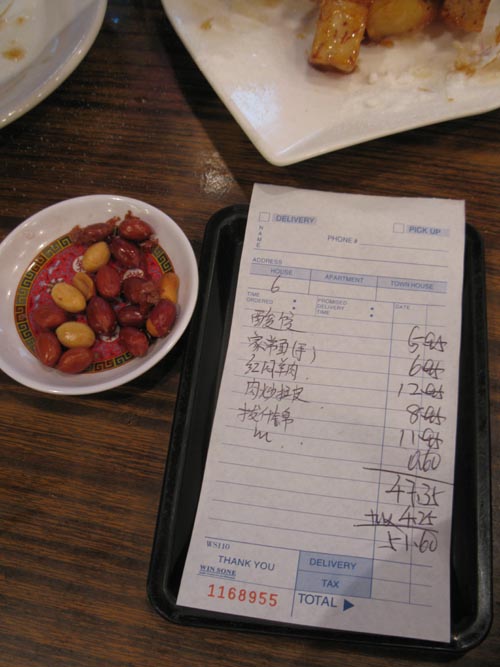 DELIVERY
PICK UP
NAME
PHONE #
ADDRESS
HOUSE APARTMENT TOWN HOUSE
6
TIME ORDERED : PROMISED DELIVERY TIME : DATE
酸饺 5.95
家常面(干) 6.95
红闷羊肉 12.95
肉炒拉皮 8.95
11.95
0.60
47.35
tax 4.25
51.60
WS110
THANK YOU
WIN SONE
1168955
DELIVERY
TAX
TOTAL ▶